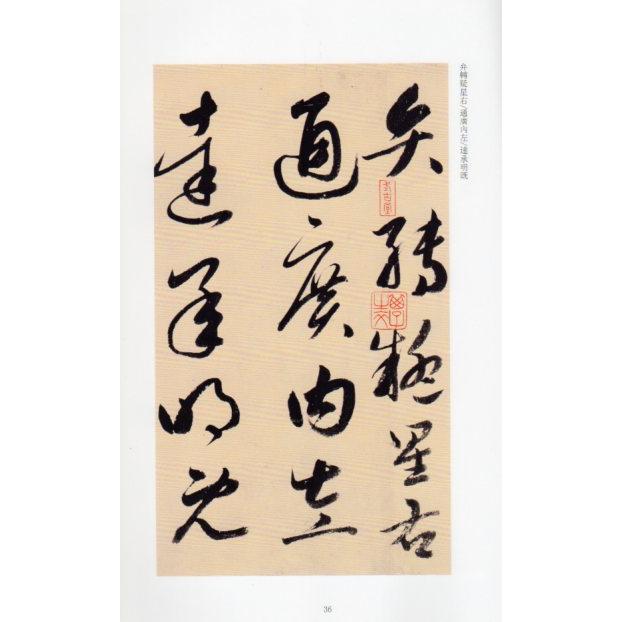 弁轉疑星右/通廣內左/達承明既
弁轉疑星右
式古堂
通廣內左
達承明既
36